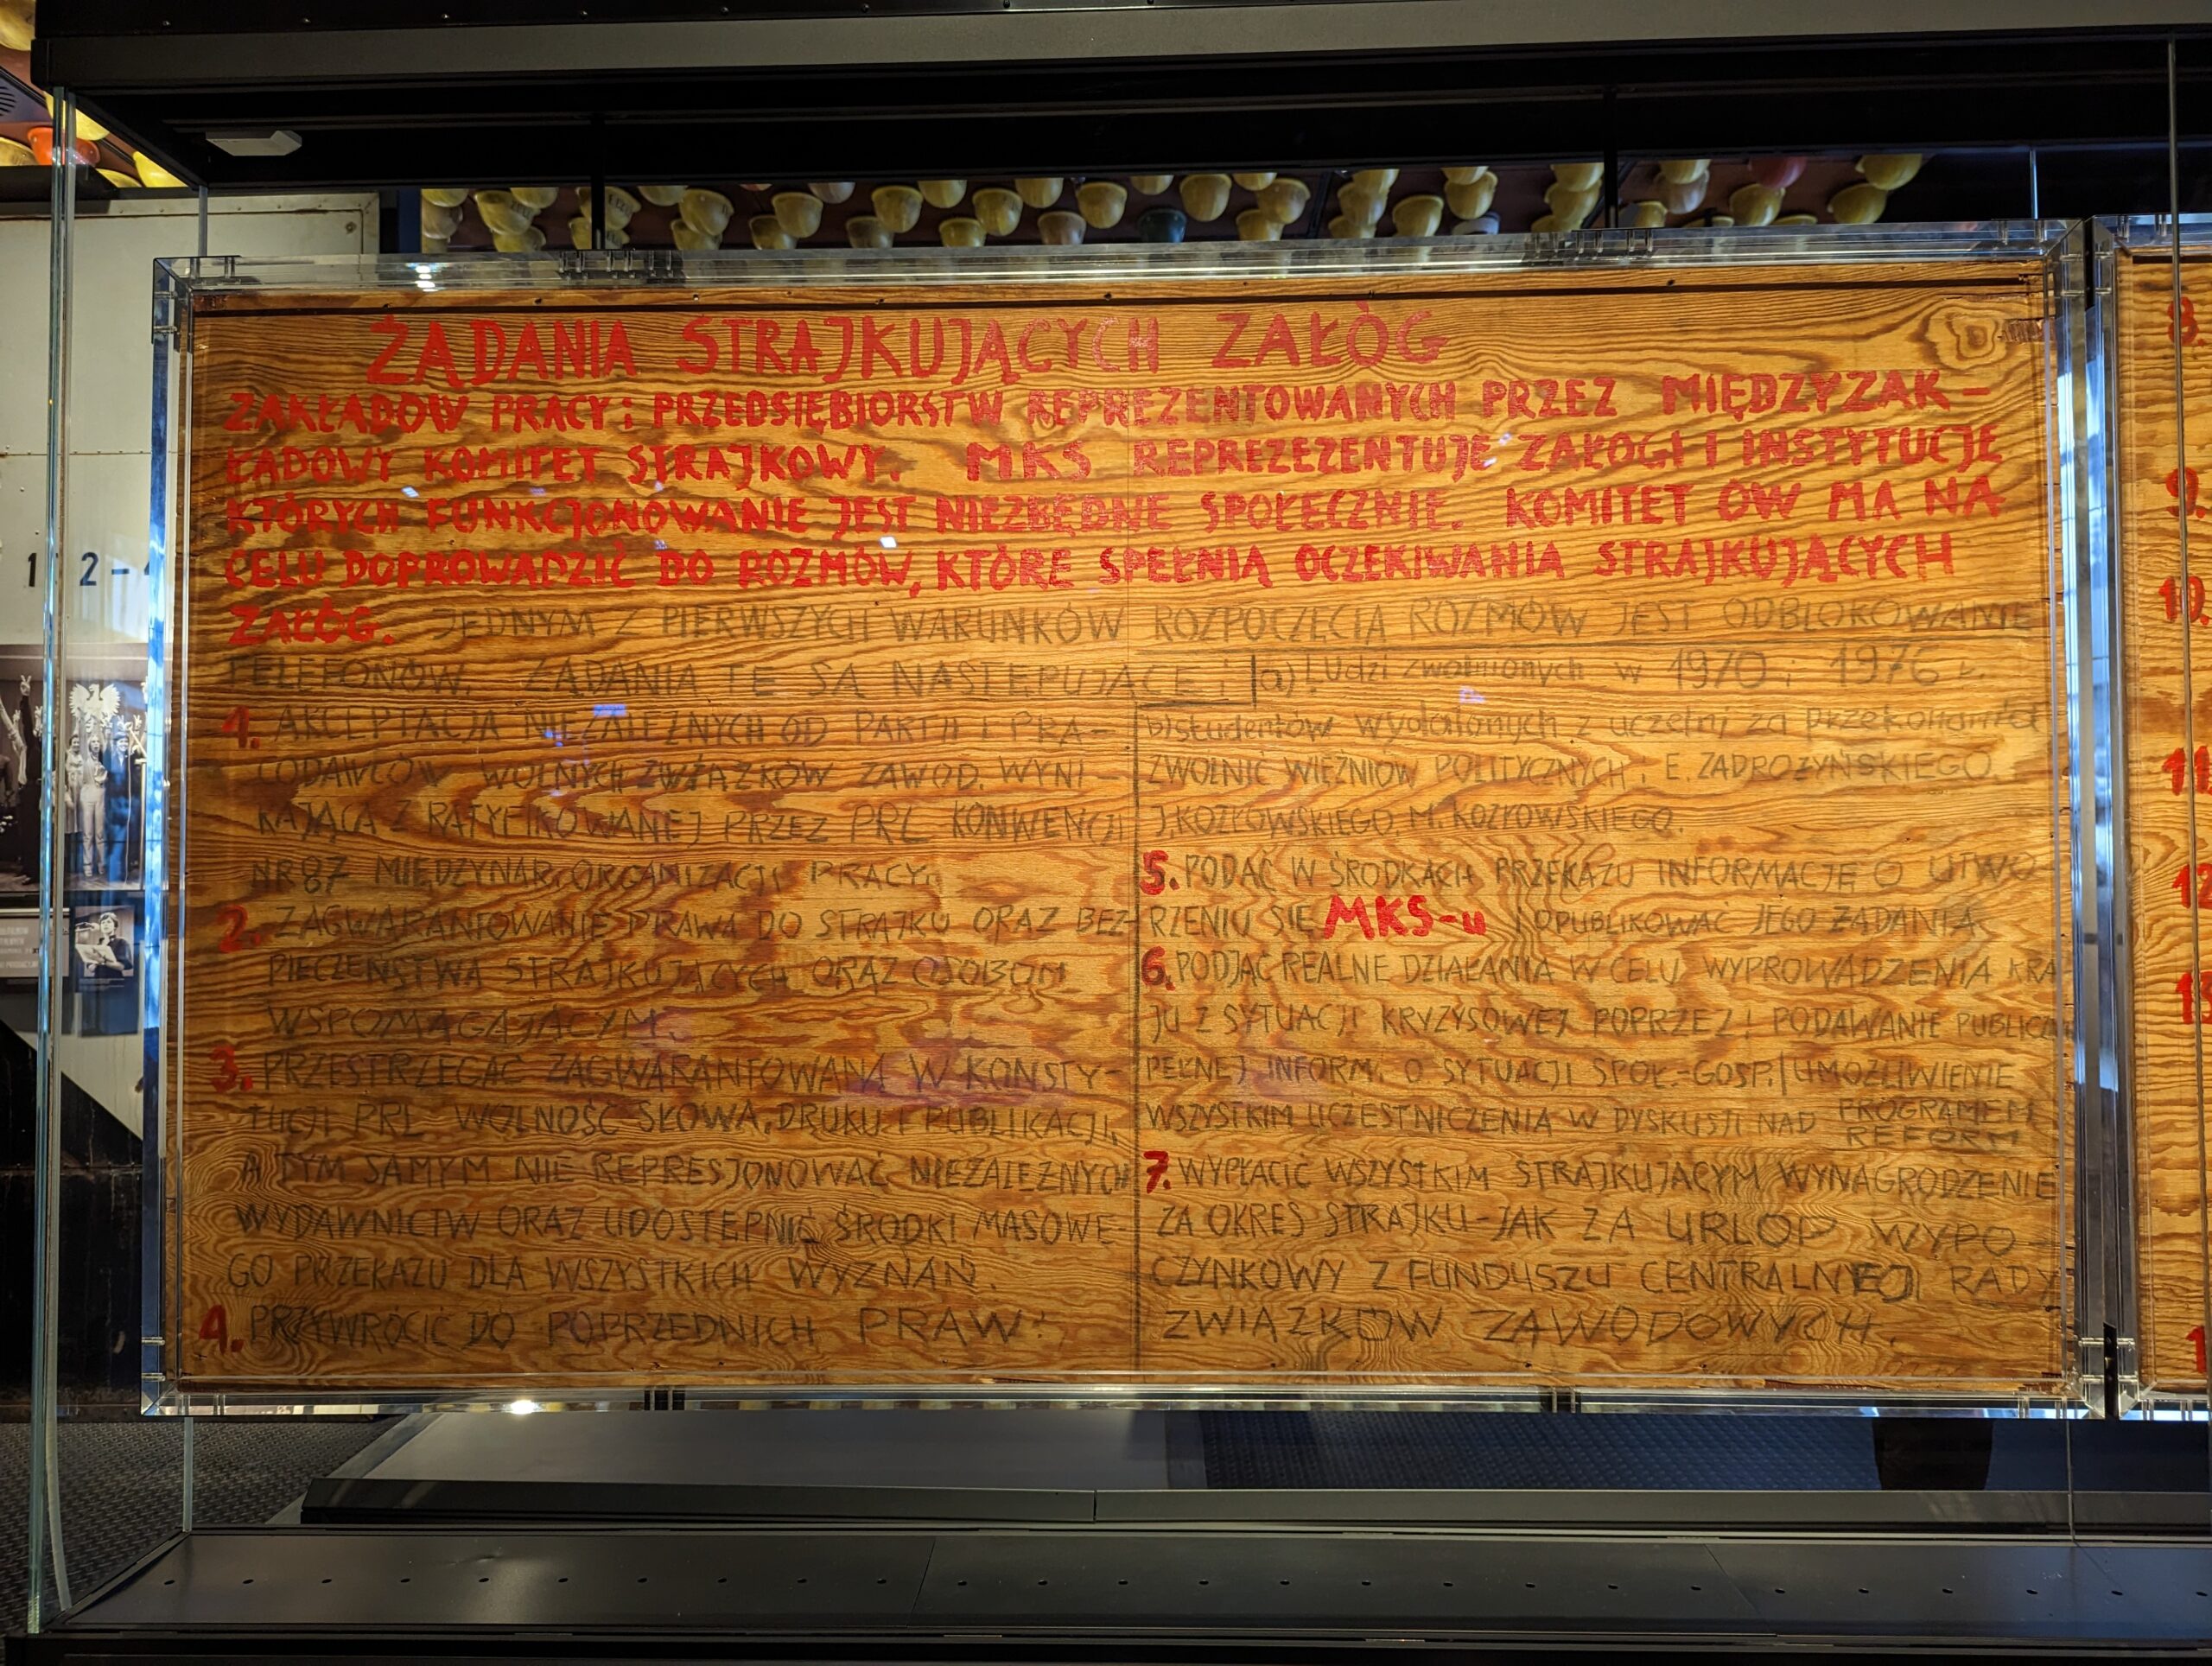 ŻĄDANIA STRAJKUJĄCYCH ZAŁÓG
ZAKŁADÓW PRACY I PRZEDSIĘBIORSTW REPREZENTOWANYCH PRZEZ MIĘDZYZAK-
ŁADOWY KOMITET STRAJKOWY. MKS REPREZEZENTUJE ZAŁOGI I INSTYTUCJE
KTÓRYCH FUNKCJONOWANIE JEST NIEZBĘDNE SPOŁECZNIE. KOMITET ÓW MA NA
CELU DOPROWADZIĆ DO ROZMÓW, KTÓRE SPEŁNIĄ OCZEKIWANIA STRAJKUJĄCYCH
ZAŁÓG. JEDNYM Z PIERWSZYCH WARUNKÓW ROZPOCZĘCIA ROZMÓW JEST ODBLOKOWANIE
TELEFONÓW. ŻĄDANIA TE SĄ NASTĘPUJĄCE:
1. AKCEPTACJA NIEZALEŻNYCH OD PARTII I PRA-
CODAWCÓW WOLNYCH ZWIĄZKÓW ZAWOD. WYNI-
KAJĄCA Z RATYFIKOWANEJ PRZEZ PRL KONWENCJI
NR 87 MIĘDZYNAR. ORGANIZACJI PRACY.
2. ZAGWARANTOWANIE PRAWA DO STRAJKU ORAZ BEZ-
PIECZEŃSTWA STRAJKUJĄCYCH ORAZ OSOBOM
WSPOMAGAJĄCYM.
3. PRZESTRZEGAĆ ZAGWARANTOWANĄ W KONSTY-
TUCJI PRL WOLNOŚĆ SŁOWA, DRUKU I PUBLIKACJI,
A TYM SAMYM NIE REPRESJONOWAĆ NIEZALEŻNYCH
WYDAWNICTW ORAZ UDOSTĘPNIĆ ŚRODKI MASOWE-
GO PRZEKAZU DLA WSZYSTKICH WYZNAŃ.
4. PRZYWRÓCIĆ DO POPRZEDNICH PRAW:
a) Ludzi zwolnionych w 1970 i 1976 r.
b) studentów wydalonych z uczelni za przekonania
ZWOLNIĆ WIĘŹNIÓW POLITYCZNYCH: E. ZADROŻYŃSKIEGO
J. KOZŁOWSKIEGO, M. KOZŁOWSKIEGO.
5. PODAĆ W ŚRODKACH PRZEKAZU INFORMACJE O UTWO-
RZENIU SIĘ MKS-u I OPUBLIKOWAĆ JEGO ŻĄDANIA
6. PODJĄĆ REALNE DZIAŁANIA W CELU WYPROWADZENIA KRA-
JU Z SYTUACJI KRYZYSOWEJ POPRZEZ: PODAWANIE PUBLICZN
PEŁNEJ INFORM. O SYTUACJI SPOŁ.-GOSP. / UMOŻLIWIENIE
WSZYSTKIM UCZESTNICZENIA W DYSKUSJI NAD PROGRAMEM
REFORM
7. WYPŁACIĆ WSZYSTKIM STRAJKUJĄCYM WYNAGRODZENIE
ZA OKRES STRAJKU-JAK ZA URLOP WYPO-
CZYNKOWY Z FUNDUSZU CENTRALNEJ RADY
ZWIĄZKÓW ZAWODOWYCH.
8.
9.
10.
11
12
13
1
1 2-4